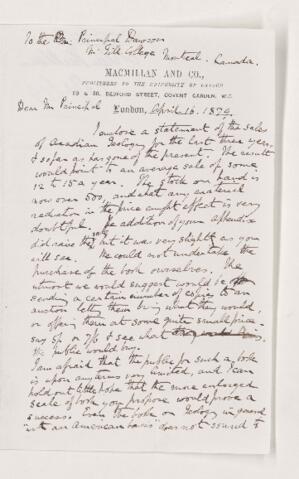 To the Principal Dawson
McGill College Montreal. Canada.
MACMILLAN AND CO.,
PUBLISHERS TO THE UNIVERSITY OF OXFORD
29 & 30, BEDFORD STREET, COVENT GARDEN, W.C.
Dear Mr Principal London, April 16. 1874.
I enclose a statement of the sales
of Acadian Geology for the last three years,
& so far as has gone of the present. The result
would point to an average sale of some
12 to 15 a year. The stock on hand is
now over 500, and what any material
reduction in the price might effect is very
doubtful. The addition of your appendix
did raise the sale but it was very slight as you
will see. We could not undertake the
purchase of the book ourselves. The
utmost we could suggest would be
sending a certain number of copies to an
auction letting them bring what they would,
or offering them at some quite small price
say 5/- or 7/6 & see what
the public would buy.
I am afraid that the public for such a book
is upon any terms very limited, and I can
hold out little hope that the more enlarged
scale of book you propose would prove a
success. Even the book on Geology in general
"with an American basis" does not sound to